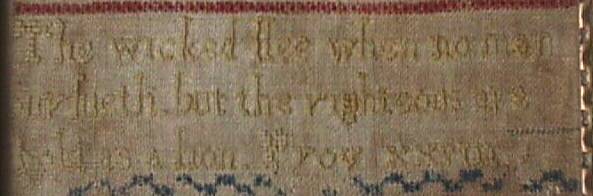 The wicked flee when no man
but the righteous are
as a lion. Prov XXVIII.